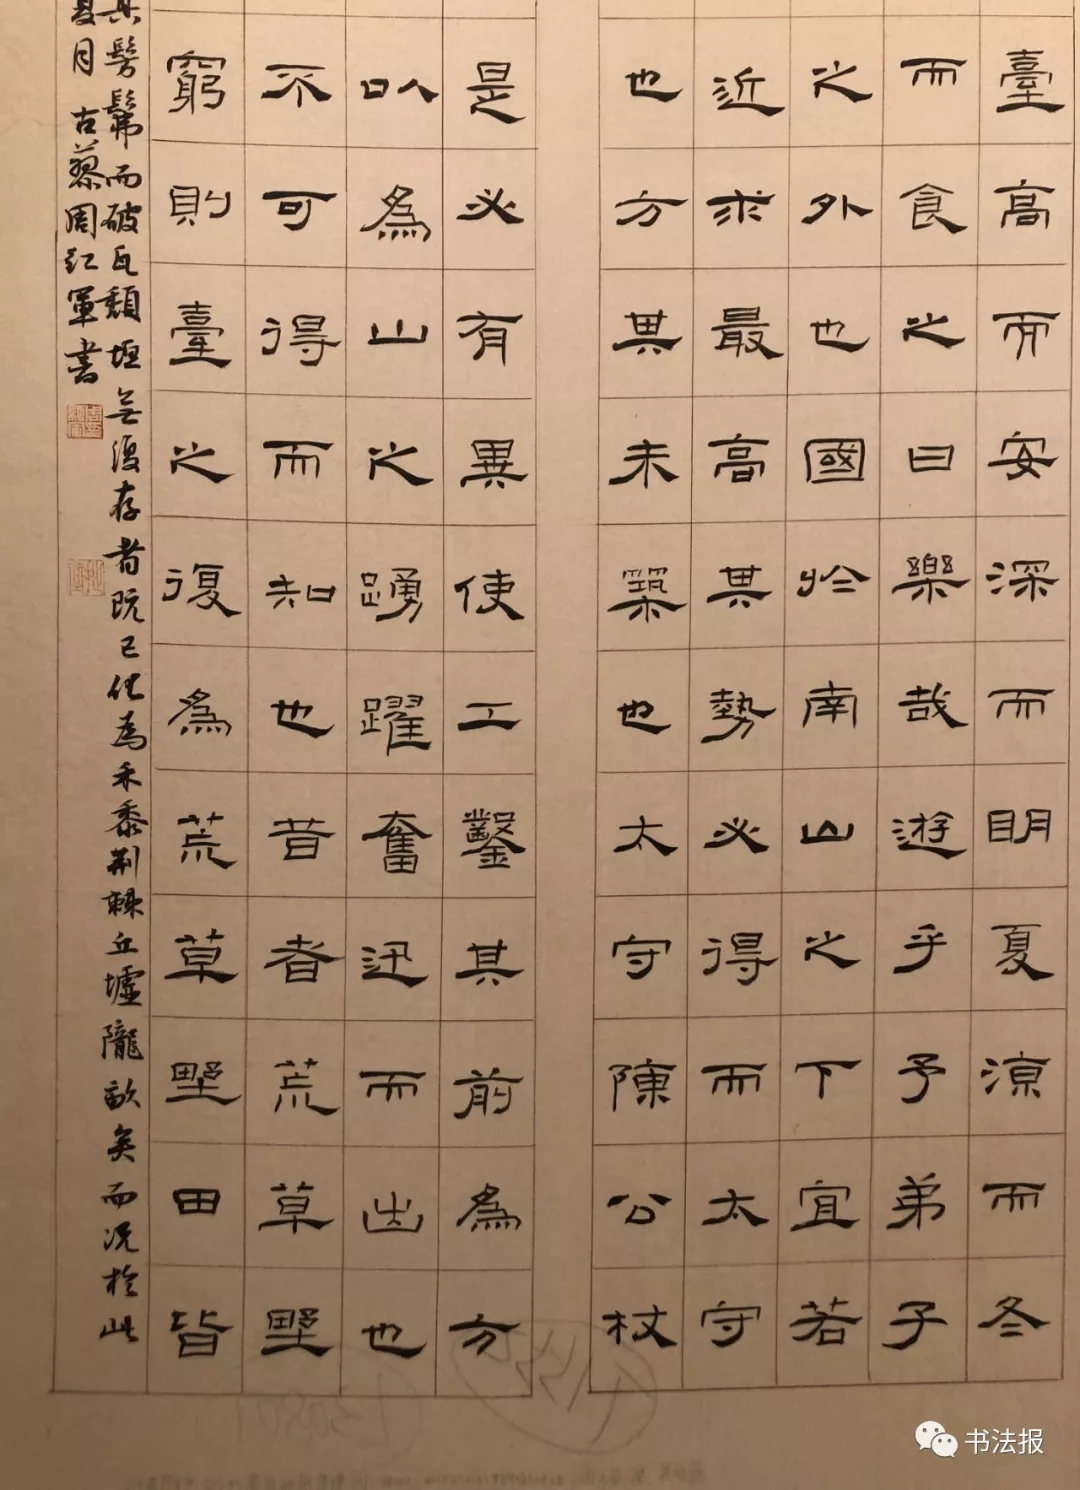 臺高而安深而明夏涼而冬
而食之曰樂哉遊乎予弟子
之外也國於南山之下宜若
近求最高其勢必得而太守
也方其未築也太守陳公杖
是必有異使工鑿其前為方
以為山之踴躍奮迅而出也
不可得而知也昔者荒草野
窮則臺之復為荒草野田皆
其髣髴而破瓦頹垣無復存者既已化為禾黍荆棘丘墟隴畝矣而況於此
夏月 古蔡周红軍書
书法报